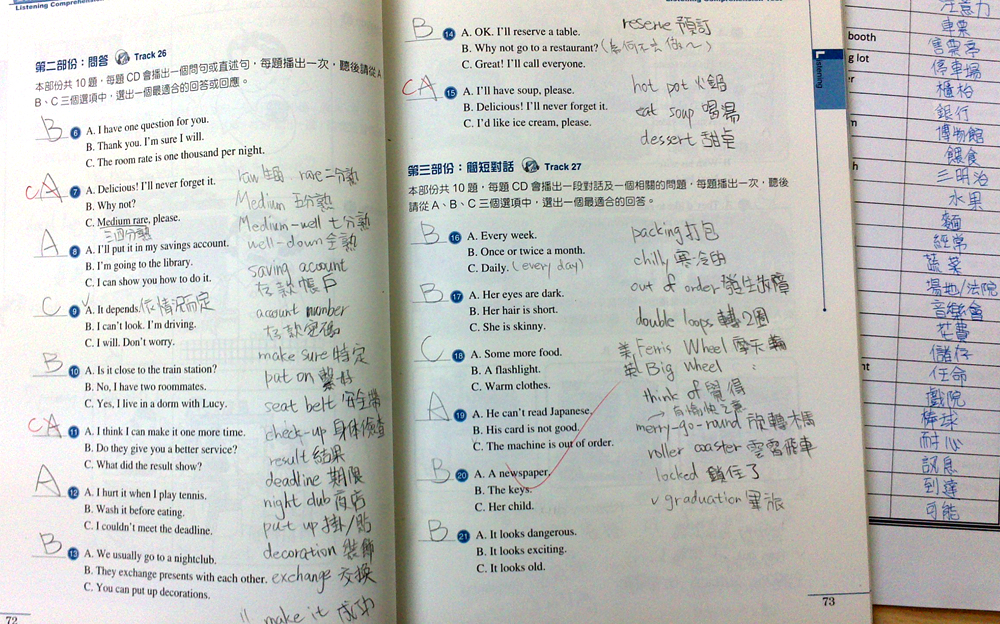 Listening Comprehension
第二部份：問答 Track 26
本部份共 10 題，每題 CD 會播出一個問句或直述句，每題播出一次，聽後請從 A、
B、C 三個選項中，選出一個最適合的回答或回應。
B 6 A. I have one question for you.
B. Thank you. I'm sure I will.
C. The room rate is one thousand per night.
CA 7 A. Delicious! I'll never forget it.
rare 二分熟
B. Why not?
Medium 五分熟
C. Medium rare, please.
Medium-well 七分熟
三四分熟
well-down 全熟
A 8 A. I'll put it in my savings account.
B. I'm going to the library.
saving account
C. I can show you how to do it.
存款帳戶
C 9 A. It depends. 依情況而定
account number
B. I can't look. I'm driving.
存款密碼
C. I will. Don't worry.
make sure 特定
B 10 A. Is it close to the train station?
put on 繫好
B. No, I have two roommates.
C. Yes, I live in a dorm with Lucy.
seat belt 安全帶
CA 11 A. I think I can make it one more time.
check-up 身体檢查
B. Do they give you a better service?
result 結果
C. What did the result show?
deadline 期限
A 12 A. I hurt it when I play tennis.
night club 夜店
B. Wash it before eating.
put up 掛/貼
C. I couldn't meet the deadline.
decoration 裝飾
B 13 A. We usually go to a nightclub.
B. They exchange presents with each other. exchange 交換
C. You can put up decorations.
make it 成功
72
B 14 A. OK. I'll reserve a table.
reserve 預訂
B. Why not go to a restaurant?
C. Great! I'll call everyone.
CA 15 A. I'll have soup, please.
hot pot 火鍋
B. Delicious! I'll never forget it.
eat soup 喝湯
C. I'd like ice cream, please.
dessert 甜点
Listening
第三部份：簡短對話 Track 27
本部份共 10 題，每題 CD 會播出一段對話及一個相關的問題，每題播出一次，聽後
請從 A、B、C 三個選項中，選出一個最適合的回答。
B 16 A. Every week.
packing 打包
B. Once or twice a month.
chilly 寒冷的
C. Daily. (every day)
out of order 發生故障
B 17 A. Her eyes are dark.
B. Her hair is short.
double loops 轉2圈
C. She is skinny.
C 18 A. Some more food.
美 Ferris Wheel 摩天輪
B. A flashlight.
英 Big Wheel
C. Warm clothes.
think of 覺得
A 19 A. He can't read Japanese.
B. His card is not good.
merry-go-round 旋轉木馬
C. The machine is out of order.
roller coaster 雲霄飛車
B 20 A. A newspaper.
locked 鎖住了
B. The keys.
graduation 畢旅
C. Her child.
B 21 A. It looks dangerous.
B. It looks exciting.
C. It looks old.
73
注意力
車票
booth
售票亭
g lot
停車場
櫃枱
銀行
博物館
餵食
三明治
水果
麵
經常
蔬菜
場地/法院
音樂會
花費
儲存
任命
戲院
棒球
耐心
訊息
到達
可能